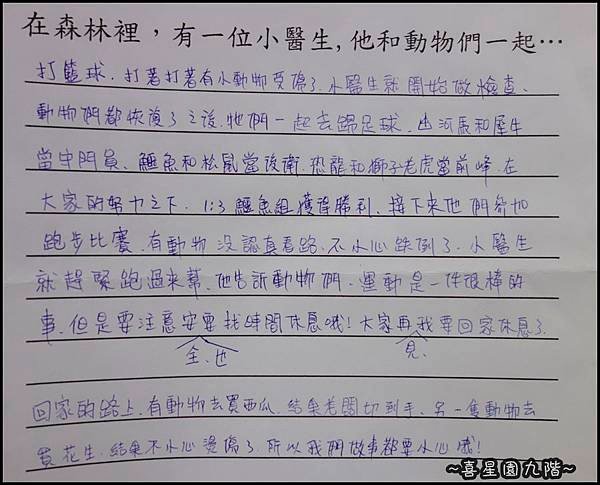 在森林裡，有一位小醫生，他和動物們一起…
打籃球、打著打著有小動物受傷了、小醫生就開始做檢查、
動物們都恢復了之後、牠們一起去踢足球、由河馬和犀牛
當守門員、鱷魚和松鼠當後衛、恐龍和獅子老虎當前峰、在
大家的努力之下、1:3鱷魚組獲得勝利、接下來他們參加
跑步比賽、有動物沒認真看路、不小心跌倒了、小醫生
就趕緊跑過來幫、他告訴動物們、運動是一件很棒的
事、但是要注意安要找時間休息哦！大家再我要回家休息了、
全、也 見、
回家的路上、有動物去買西瓜、結果老闆切到手、另一隻動物去
買花生、結果不小心燙傷了、所以我們做事都要小心哦！
~喜星園九階~